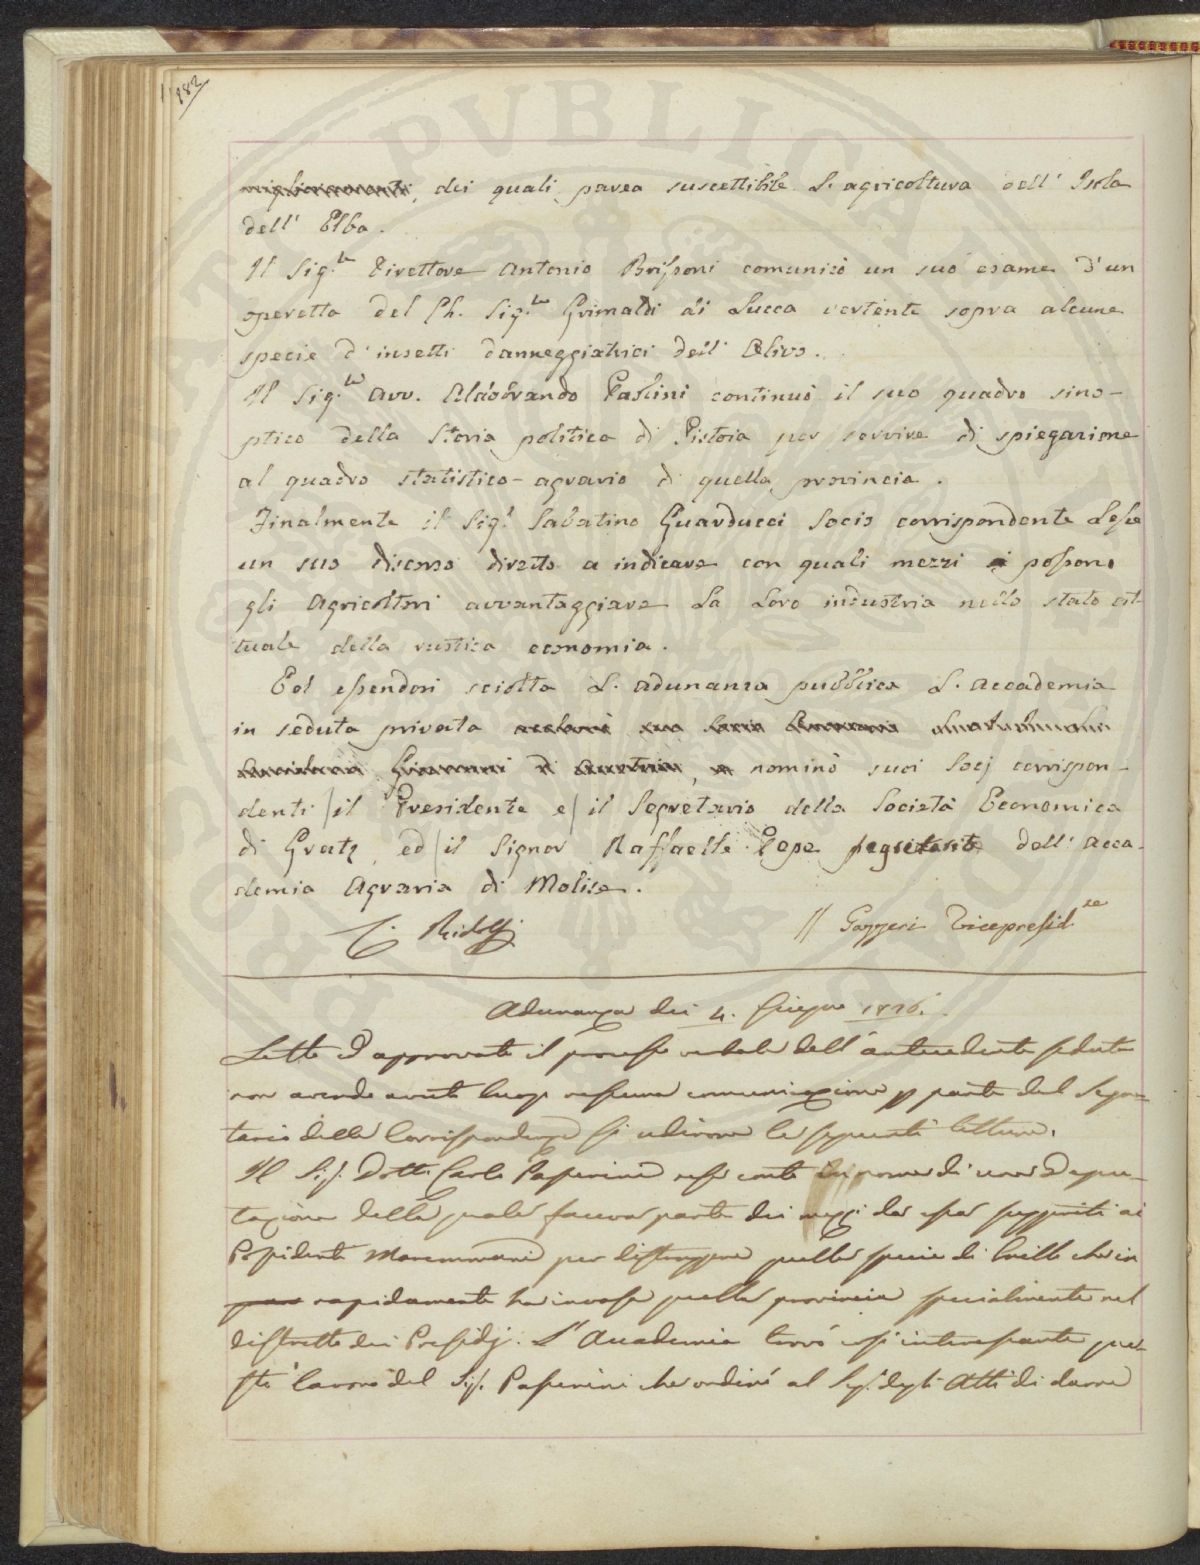 182
miglioramenti, dei quali parea suscettibile l'agricoltura dell'Isola
dell'Elba.
Il Sig.re Direttore Antonio Brissoni comunicò un suo esame d'un
operetta del Ch. Sig.re Grimaldi di Lucca vertente sopra alcune
specie d'insetti danneggiatrici dell'Olivo.
Il Sig.re Avv. Aldobrando Paolini continuò il suo quadro sino-
ptico della Storia politica di Pistoia per servire di spiegazione
al quadro statistico-agrario di quella provincia.
Finalmente il Sig.r Sabatino Guarducci Socio corrispondente Lesse
un suo discorso diretto a indicare con quali mezzi possono
gli Agricoltori avvantaggiare la loro industria nello stato at-
tuale della rustica economia.
Ed essendosi sciolta l'adunanza pubblica l'Accademia
in seduta privata
Giovanni d'Austria, nominò suoi Socj corrispon-
denti il Presidente e il Segretario della Società Economica
di Gratz, ed il Signor Raffaelle Pepe segretario dell'Acca-
demia Agraria di Molise.
C. Ridolfi
Gazzeri Vicepresid.te
Adunanza dei 4. Giugno 1826.
Letto ed approvato il processo verbale dell'antecedente seduta
non avendo avuto luogo nessuna comunicazione p parte del Segre-
tario delle Corrispondenze si udirono le seguenti letture.
Il Sig. Dott. Carlo Passerini rese conto in nome di una Depu-
tazione della quale faceva parte dei mezzi da esser suggeriti ai
Possidenti Maremmani per distruggere quella specie di Grillo che in
rapidamente ha invaso quella provincia specialmente nel
distretto dei Presidj. L'Accademia trovò così interessante que-
sto lavoro del Sig. Passerini che ordinò al Seg. degli Atti di darne